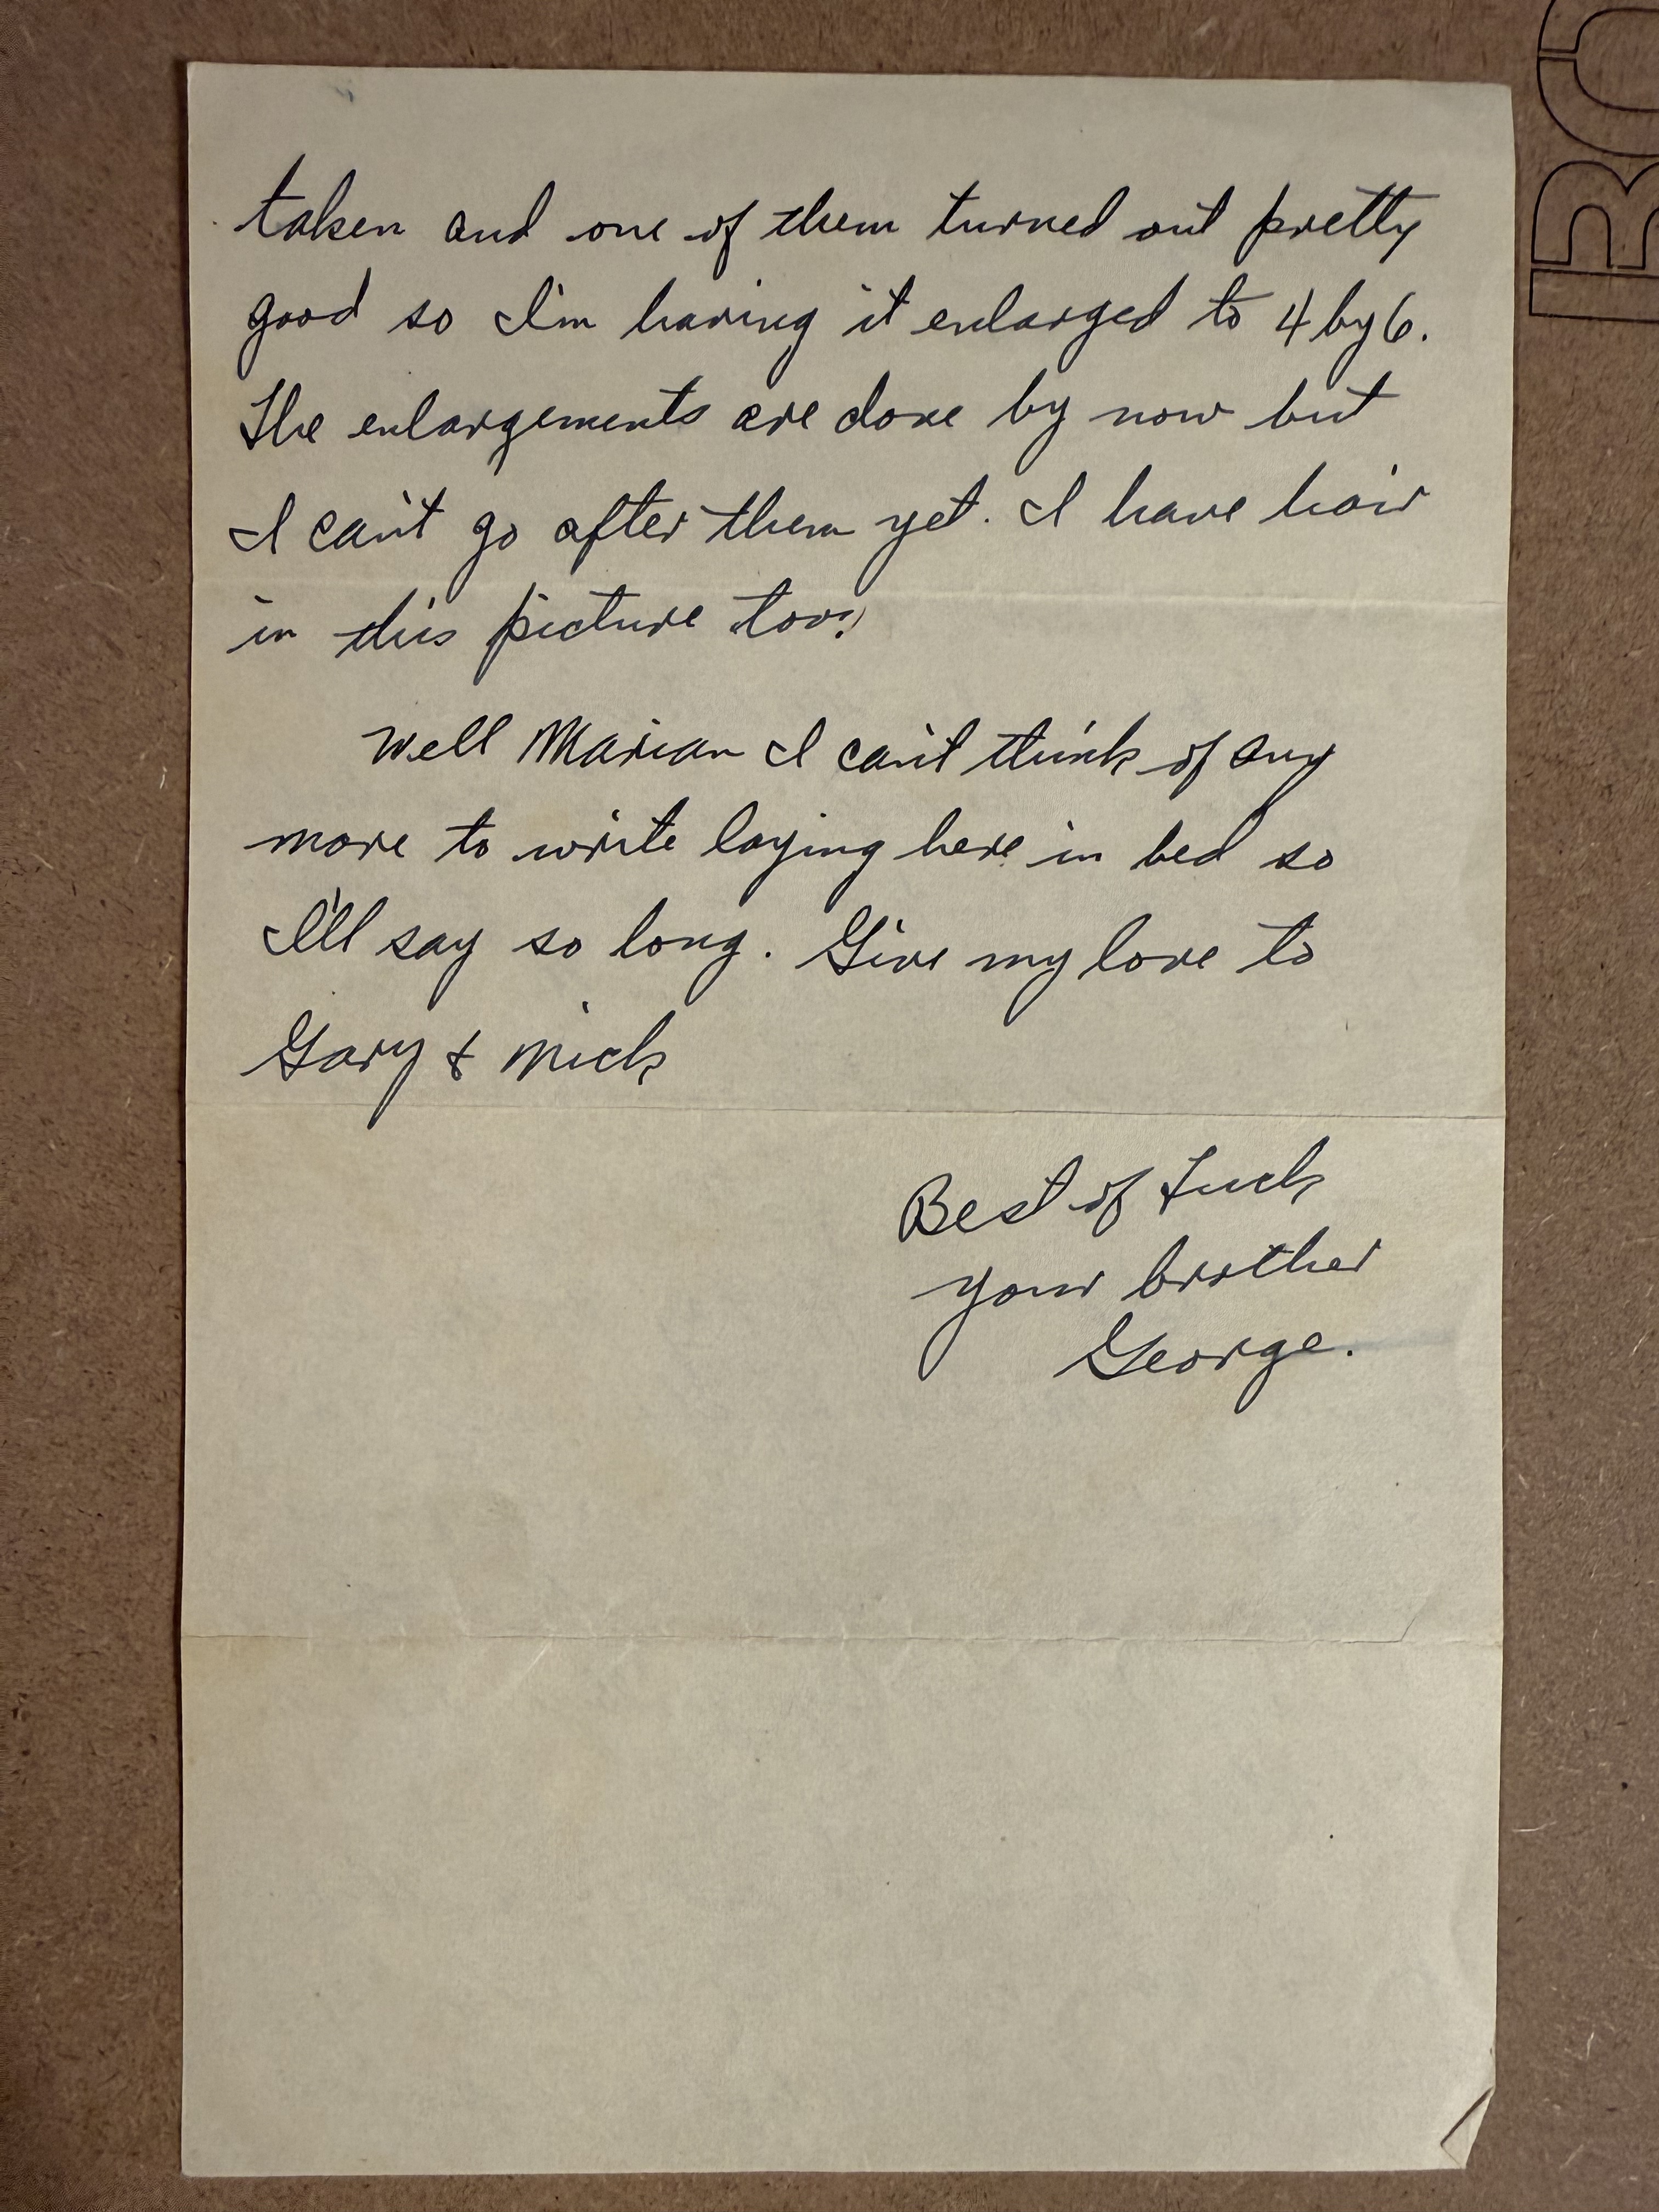 taken and one of them turned out pretty
good so I'm having it enlarged to 4 by 6.
The enlargements are done by now but
I can't go after them yet. I have hair
in this picture too!
Well Marian I can't think of any
more to write laying here in bed so
I'll say so long. Give my love to
Gary & Mick
Best of Luck
your brother
George.